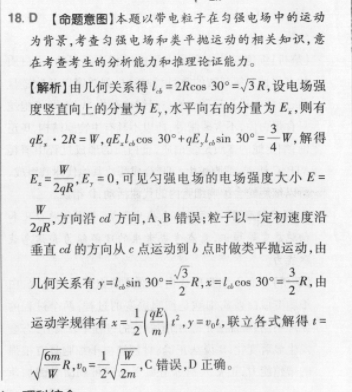 18. D 【命题意图】本题以带电粒子在匀强电场中的运动
为背景,考查匀强电场和类平抛运动的相关知识,意
在考查考生的分析能力和推理论证能力。
【解析】由几何关系得 l_{cb}=2Rcos 30°=√3R,设电场强
度竖直向上的分量为 E_y,水平向右的分量为 E_x,则有
qE_x·2R=W,qE_xl_{cb}cos 30°+qE_yl_{cb}sin 30°=\frac{3}{4}W,解得
E_x=\frac{W}{2qR},E_y=0,可见匀强电场的电场强度大小 E=
\frac{W}{2qR},方向沿 cd 方向,A、B 错误;粒子以一定初速度沿
垂直 cd 的方向从 c 点运动到 b 点时做类平抛运动,由
几何关系有 y=l_{cb}sin 30°=\frac{√3}{2}R,x=l_{cb}cos 30°=\frac{3}{2}R,由
运动学规律有 x=\frac{1}{2}(\frac{qE}{m})t²,y=v₀t,联立各式解得 t=
\sqrt{\frac{6m}{W}}R,v₀=\frac{1}{2}\sqrt{\frac{W}{2m}},C 错误,D 正确。